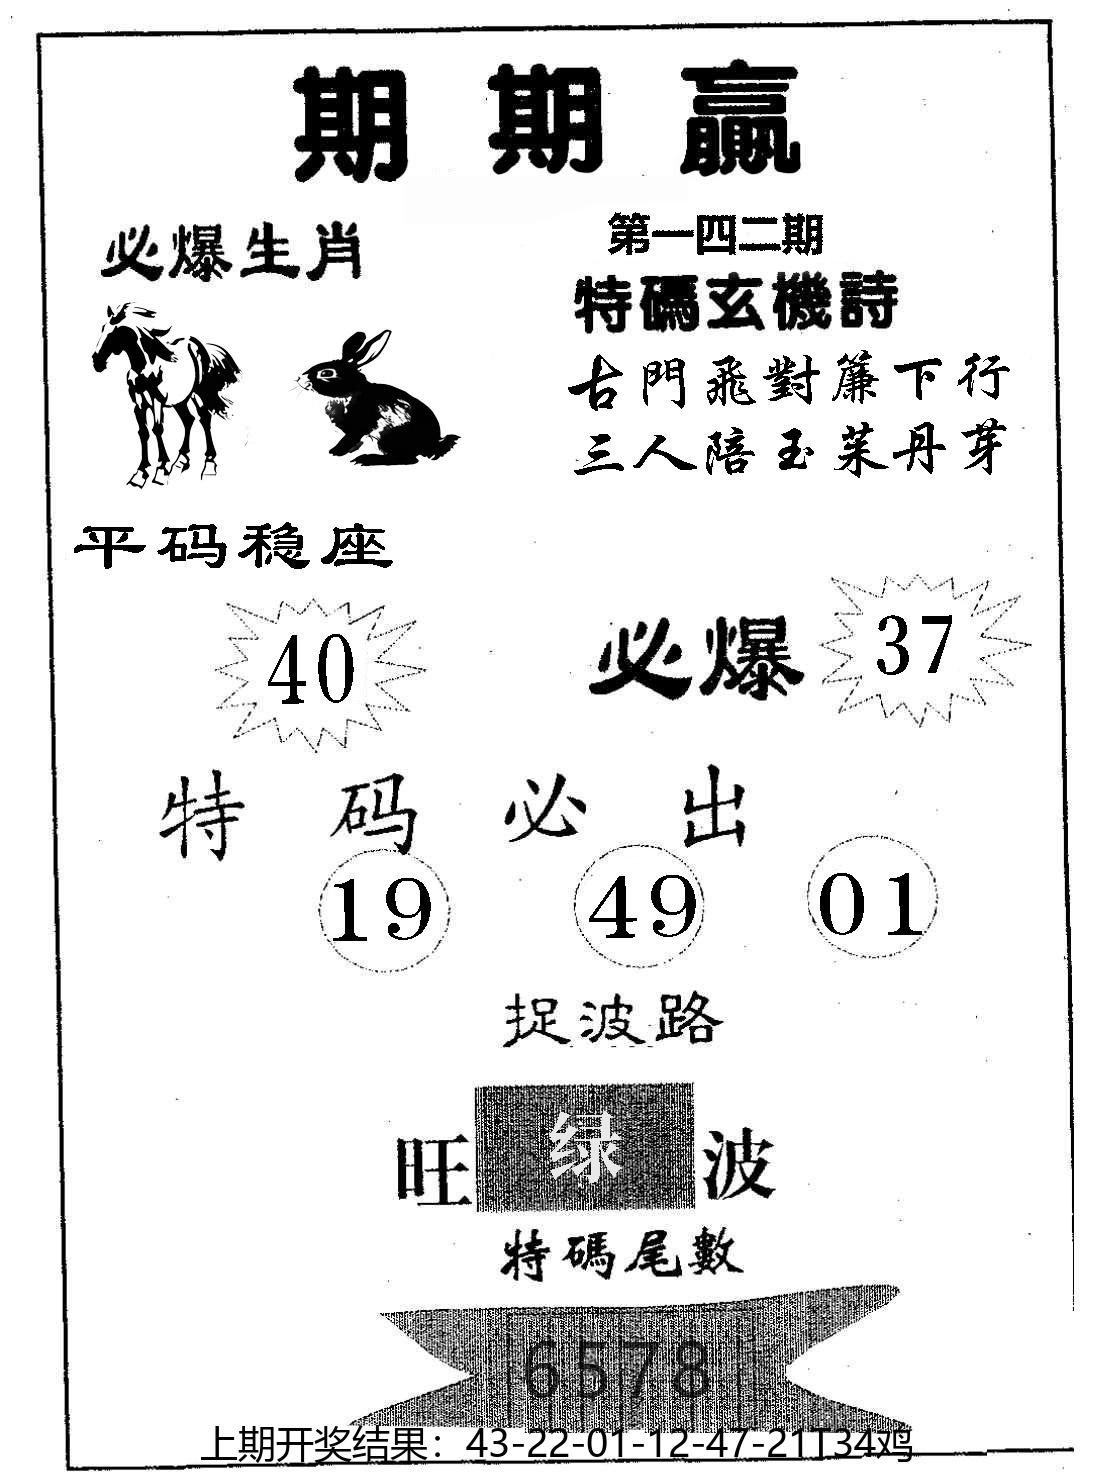 期期赢
必爆生肖
第一四二期
特碼玄機詩
古門飛對簾下行
三人陪玉茱丹芽
平码稳座
40
必爆
37
特码必出
19 49 01
捉波路
旺绿波
特碼尾數
6578
上期开奖结果：43-22-01-12-47-21T34鸡